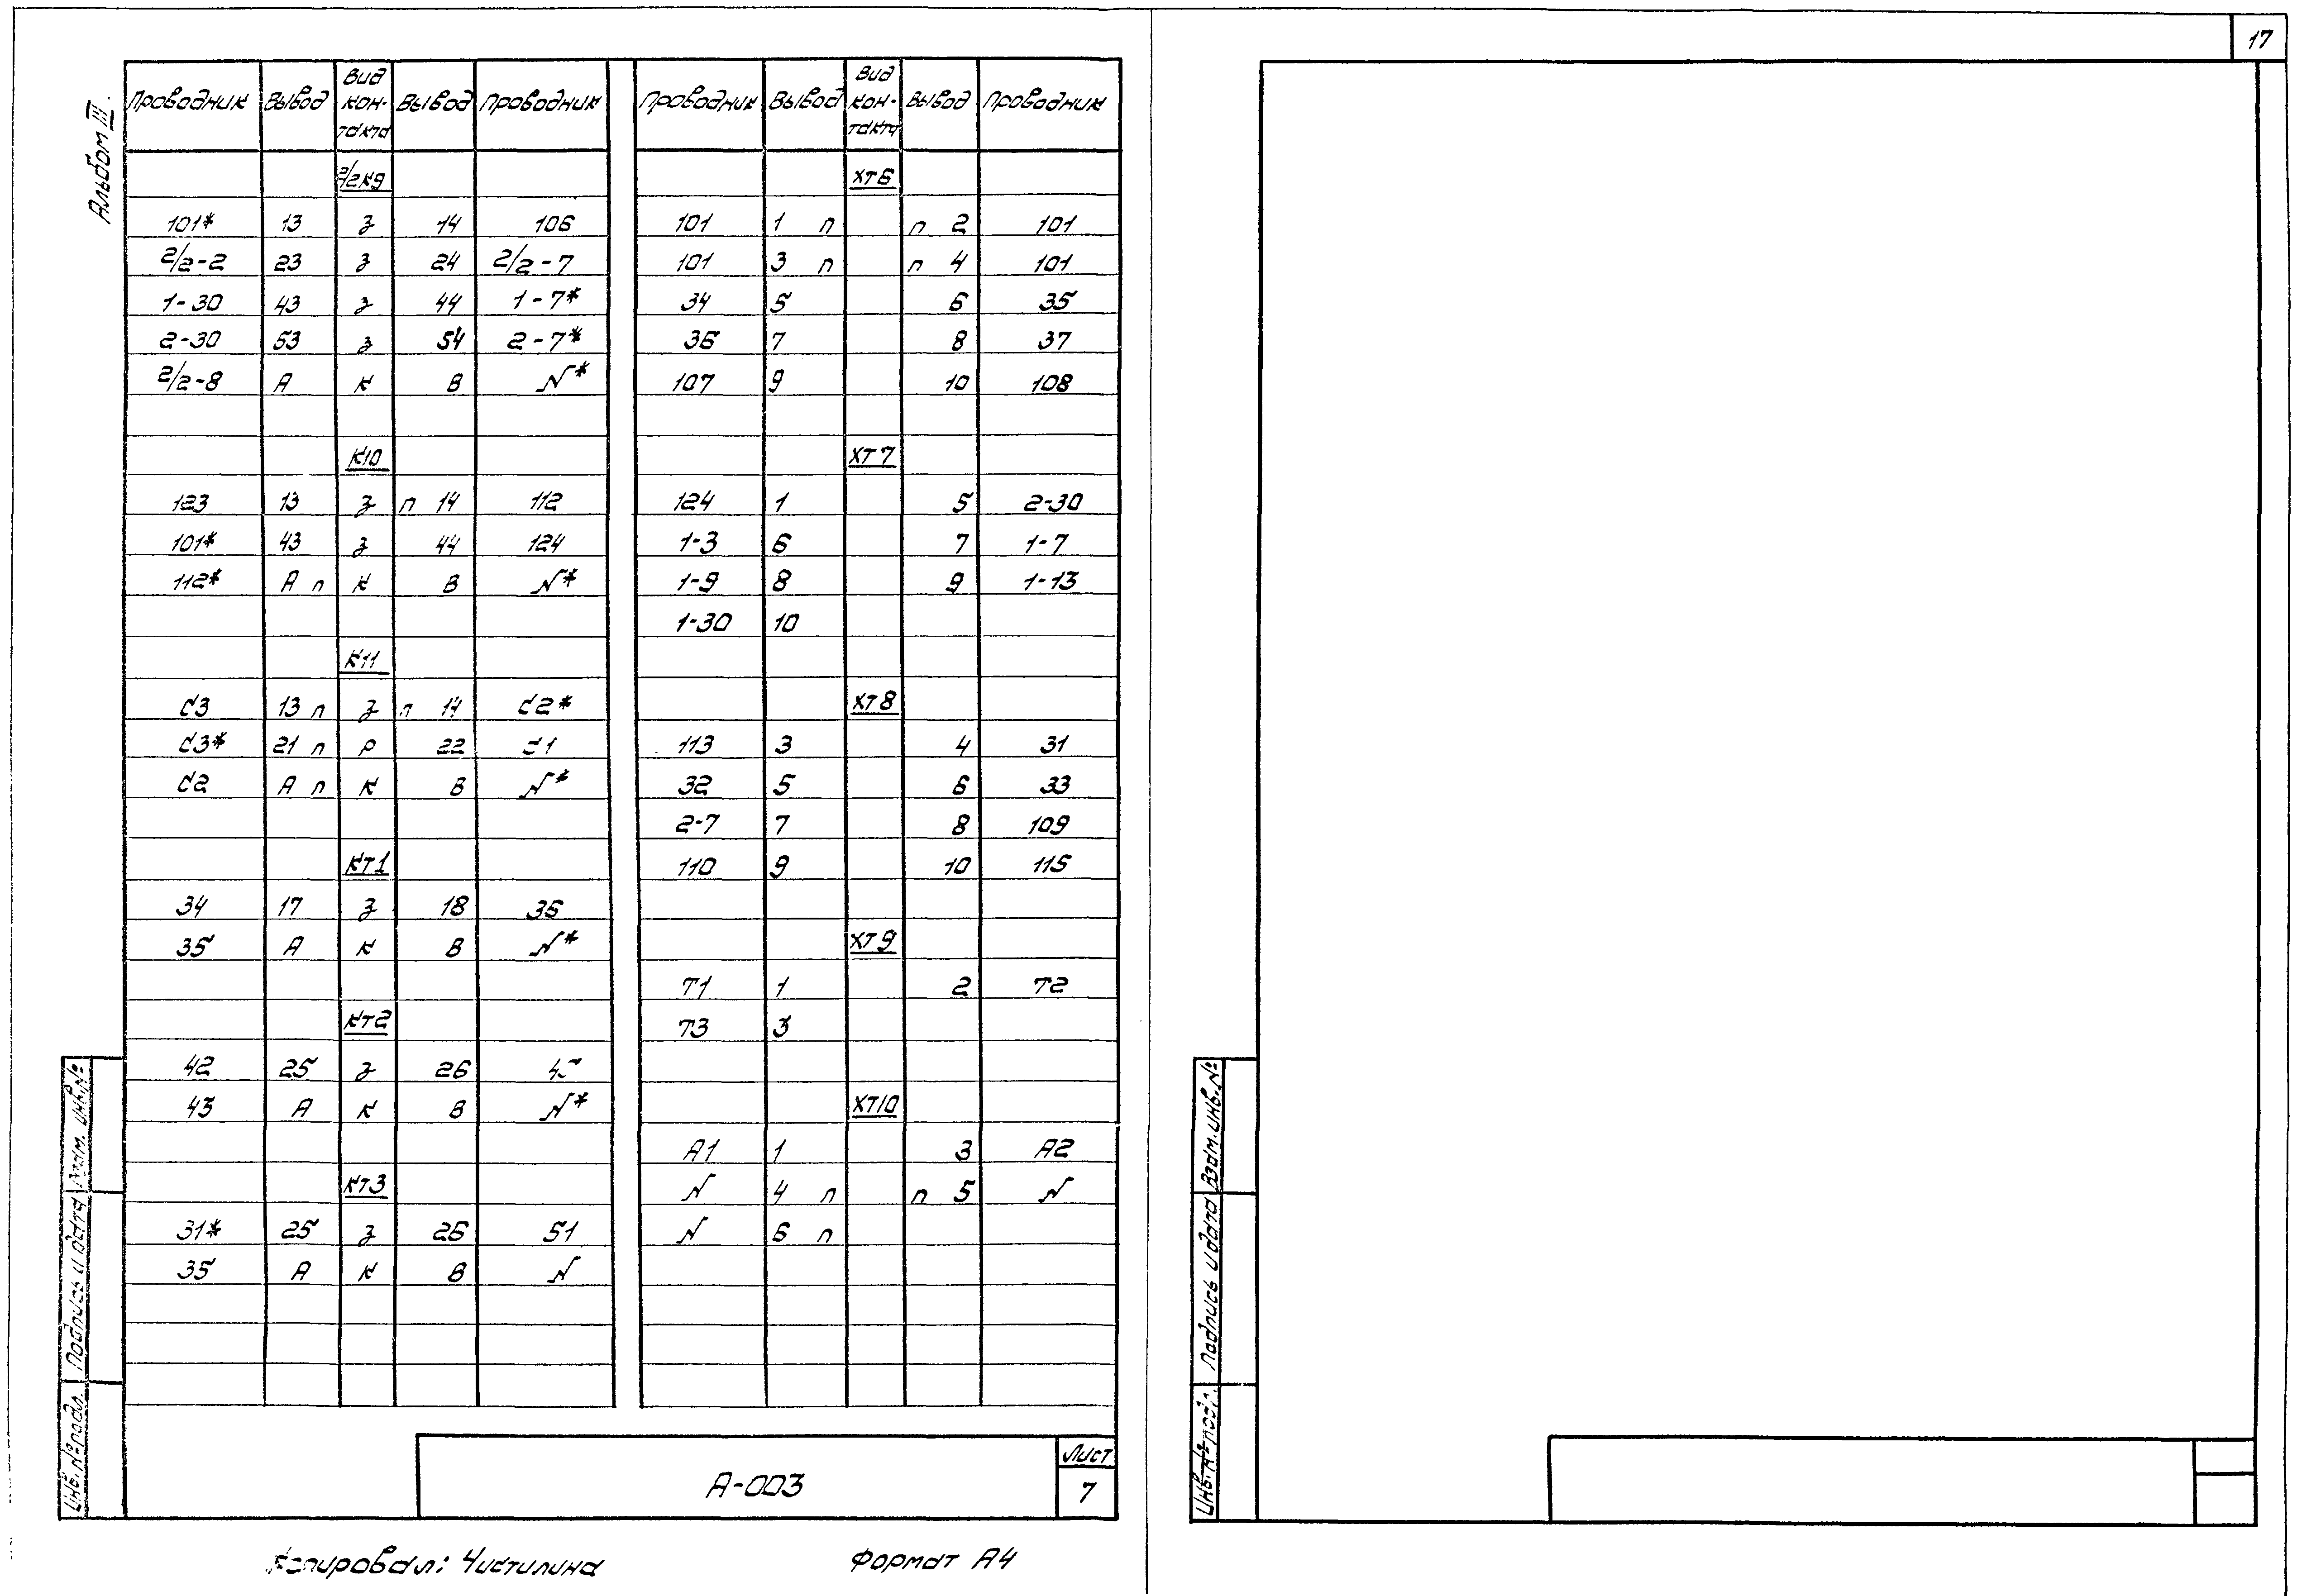 17
Альбом III.
Проводник Вывод Вид кон-такта Вывод Проводник
2/2К9
101* 13 з 14 106
2/2-2 23 з 24 2/2-7
1-30 43 з 44 1-7*
2-30 53 з 54 2-7*
2/2-8 А К В N*
К10
123 13 з п 14 112
101* 43 з 44 124
112* А п К В N*
К11
С3 13 п з п 14 С2*
С3* 21 п Р 22 С1
С2 А п К В N*
КТ1
34 17 з 18 36
35 А К В N*
КТ2
42 25 з 26
43 А К В N*
КТ3
31* 25 з 26 51
35 А К В N
Проводник Вывод Вид кон-такта Вывод Проводник
ХТ6
101 1 п п 2 101
101 3 п п 4 101
34 5 6 35
36 7 8 37
107 9 10 108
ХТ7
124 1 5 2-30
1-3 6 7 1-7
1-9 8 9 1-13
1-30 10
ХТ8
113 3 4 31
32 5 6 33
2-7 7 8 109
110 9 10 115
ХТ9
Т1 1 2 Т2
Т3 3
ХТ10
А1 1 3 А2
N 4 п п 5 N
N 6 п
Инв. № подл. Подпись и дата Взам. инв. №
А-003
Лист
7
Копировал: Чистилина
Формат А4
Инв. № подл. Подпись и дата Взам. инв. №